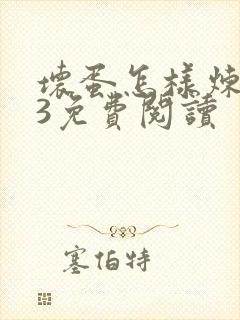 壞蛋怎樣煉
3免費閱讀
塞伯特